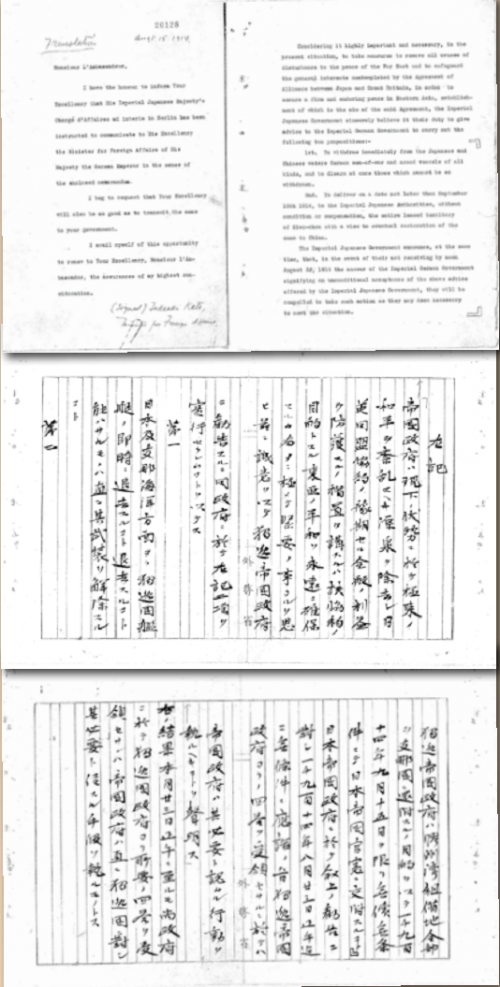 Translation
August 15, 1914.
Monsieur l'Ambassadeur,
I have the honour to inform Your
Excellency that His Imperial Japanese Majesty's
Chargé d'Affaires ad interim in Berlin has been
instructed to communicate to His Excellency
the Minister for Foreign Affairs of His
Majesty the German Emperor in the sense of
the enclosed memorandum.
I beg to request that Your Excellency
will also be so good as to transmit the same
to your government.
I avail myself of this opportunity
to renew to Your Excellency, Monsieur l'Am-
bassadeur, the assurances of my highest con-
sideration.
(Signed) Kato,
for Foreign Affairs
Considering it highly important and necessary, in the
present situation, to take measures to remove all causes of
disturbance to the peace of the Far East and to safeguard
the general interests contemplated by the Agreement of
Alliance between Japan and Great Britain, in order to
secure a firm and enduring peace in Eastern Asia, establish-
ment of which is the aim of the said Agreement, the Imperial
Japanese Government sincerely believe it their duty to give
advice to the Imperial German Government to carry out the
following two propositions:-
1st. To withdraw immediately from the Japanese and
Chinese waters German men-of-war and armed vessels of all
kinds, and to disarm at once those which cannot be so
withdrawn.
2nd. To deliver on a date not later than September
15th 1914, to the Imperial Japanese Authorities, without
condition or compensation, the entire leased territory
of Kiao-chou with a view to eventual restoration of the
same to China.
The Imperial Japanese Government announce, at the same
time, that, in the event of their not receiving by noon
August 23, 1914 the answer of the Imperial German Government
signifying an unconditional acceptance of the above advice
offered by the Imperial Japanese Government, they will be
compelled to take such action as they may deem necessary
to meet the situation.
左記
帝國政府ハ現下ノ状勢ニ於テ極東ノ
和平ヲ紊乱スヘキ源泉ヲ除去シ日
英同盟協約ノ豫期セル全般ノ利益
ヲ防護スルノ措置ヲ講スルハ該協約ノ
目的トスル東亜ノ平和ヲ永遠ニ確保
スルカ為メニ極メテ緊要ノ事タルヲ思
ヒ茲ニ誠意ヲ以テ獨逸帝國政府
ニ勧告スルニ同政府ニ於テ左記二項ヲ
実行センコトヲ以テス
第一
日本及支那海洋方面ヨリ獨逸國艦
艇ノ即時ニ退去スルコト退去スルコト
能ハサルモノハ直ニ其武装ヲ解除スル
コト
第二
獨逸帝國政府ハ膠州湾租借地全部
ヲ支那國ニ還附スルノ目的ヲ以テ一千九百
十四年九月十五日ヲ限リ無償無条
件ニテ日本帝國官憲ニ交附スルコト
日本帝國政府ニ於テ叙上ノ勧告ニ
對シ一千九百十四年八月廿三日正午迄
ニ無條件ニ應諾ノ旨獨逸帝國
政府ヨリノ回答ヲ受領セサルニ於テハ
帝國政府ハ其必要ト認ムル行動ヲ
執ルヘキコトヲ聲明ス
右ノ結果本月廿三日正午ニ至ルモ尚政府
ニ於テ獨逸國政府ヨリ前要ノ回答ヲ受
領セサレハ帝國政府ハ直ニ獨逸國ニ對シ
其必要ト信スル手段ヲ執ルコトトス